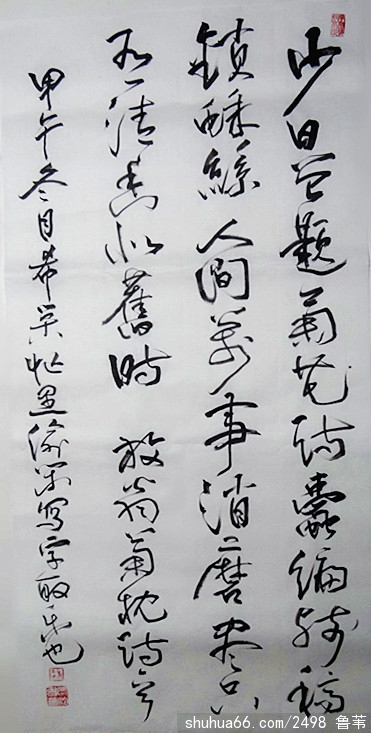 少日曾題菊花詩蠹编残稿
鎖蛛絲人間萬事消磨盡只
有清香似舊時 放翁菊枕詩
甲午冬月希荣忙里偷闲写字取乐也
shuhua66.com/2498 鲁苇